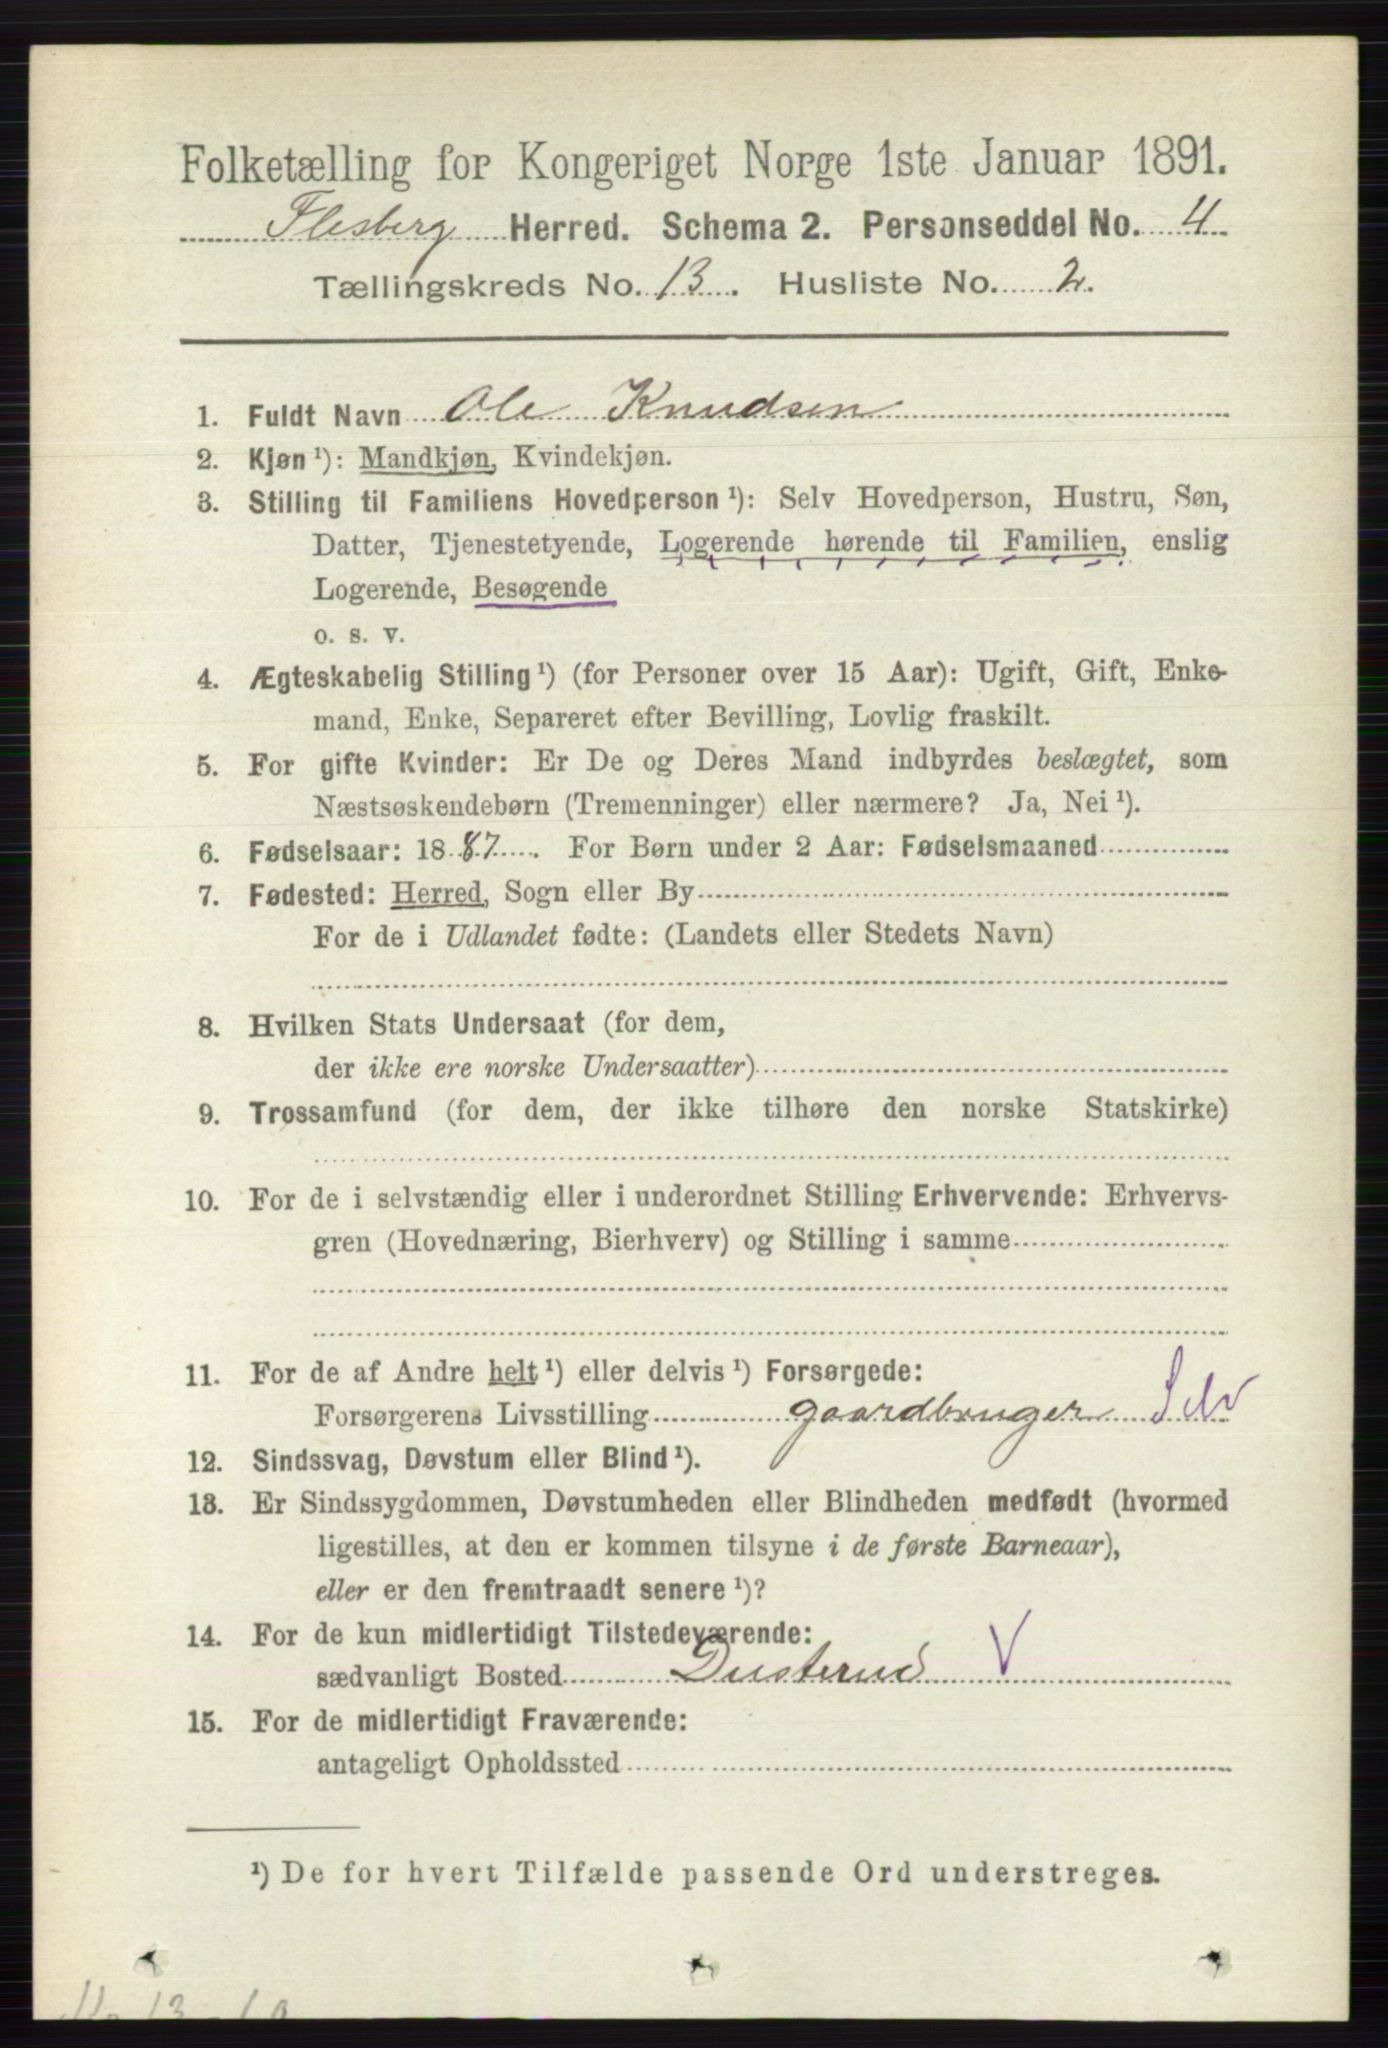 Folketælling for Kongeriget Norge 1ste Januar 1891.
Flesberg Herred. Schema 2. Personseddel No. 4
Tællingskreds No. 13. Husliste No. 2.
1. Fuldt Navn Ole Knudsen
2. Kjøn ¹): Mandkjøn, Kvindekjøn.
3. Stilling til Familiens Hovedperson ¹): Selv Hovedperson, Hustru, Søn,
Datter, Tjenestetyende, Logerende hørende til Familien, enslig
Logerende, Besøgende
o. s. v.
4. Ægteskabelig Stilling ¹) (for Personer over 15 Aar): Ugift, Gift, Enke-
mand, Enke, Separeret efter Bevilling, Lovlig fraskilt.
5. For gifte Kvinder: Er De og Deres Mand indbyrdes beslægtet, som
Næstsøskendebørn (Tremenninger) eller nærmere? Ja, Nei ¹).
6. Fødselsaar: 1887. For Børn under 2 Aar: Fødselsmaaned
7. Fødested: Herred, Sogn eller By
For de i Udlandet fødte: (Landets eller Stedets Navn)
8. Hvilken Stats Undersaat (for dem,
der ikke ere norske Undersaatter)
9. Trossamfund (for dem, der ikke tilhøre den norske Statskirke)
10. For de i selvstændig eller i underordnet Stilling Erhvervende: Erhvervs-
gren (Hovednæring, Bierhverv) og Stilling i samme
11. For de af Andre helt ¹) eller delvis ¹) Forsørgede:
Forsørgerens Livsstilling gaardbruger Selv
12. Sindssvag, Døvstum eller Blind ¹).
13. Er Sindssygdommen, Døvstumheden eller Blindheden medfødt (hvormed
ligestilles, at den er kommen tilsyne i de første Barneaar),
eller er den fremtraadt senere ¹)?
14. For de kun midlertidigt Tilstedeværende:
sædvanligt Bosted Dusterud V
15. For de midlertidigt Fraværende:
antageligt Opholdssted
¹) De for hvert Tilfælde passende Ord understreges.